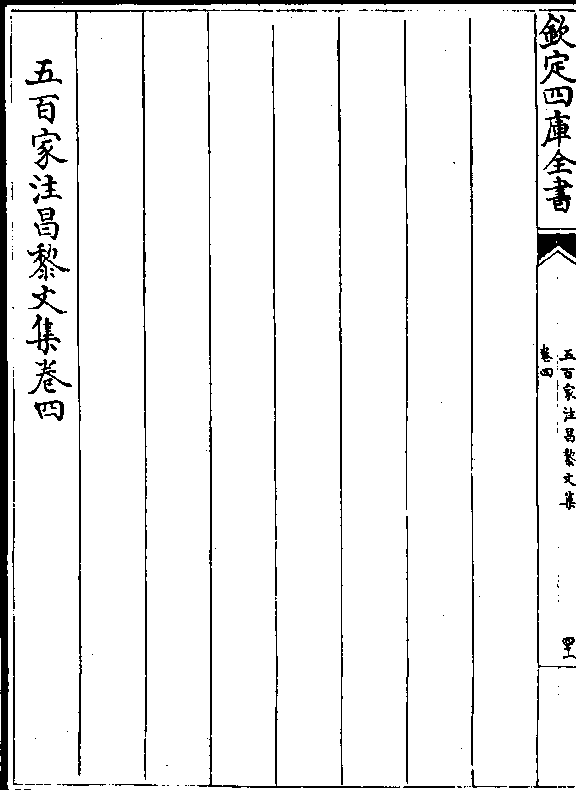 欽定四庫全書
五百家注昌黎文集
卷四
四十一
五百家注昌黎文集卷四